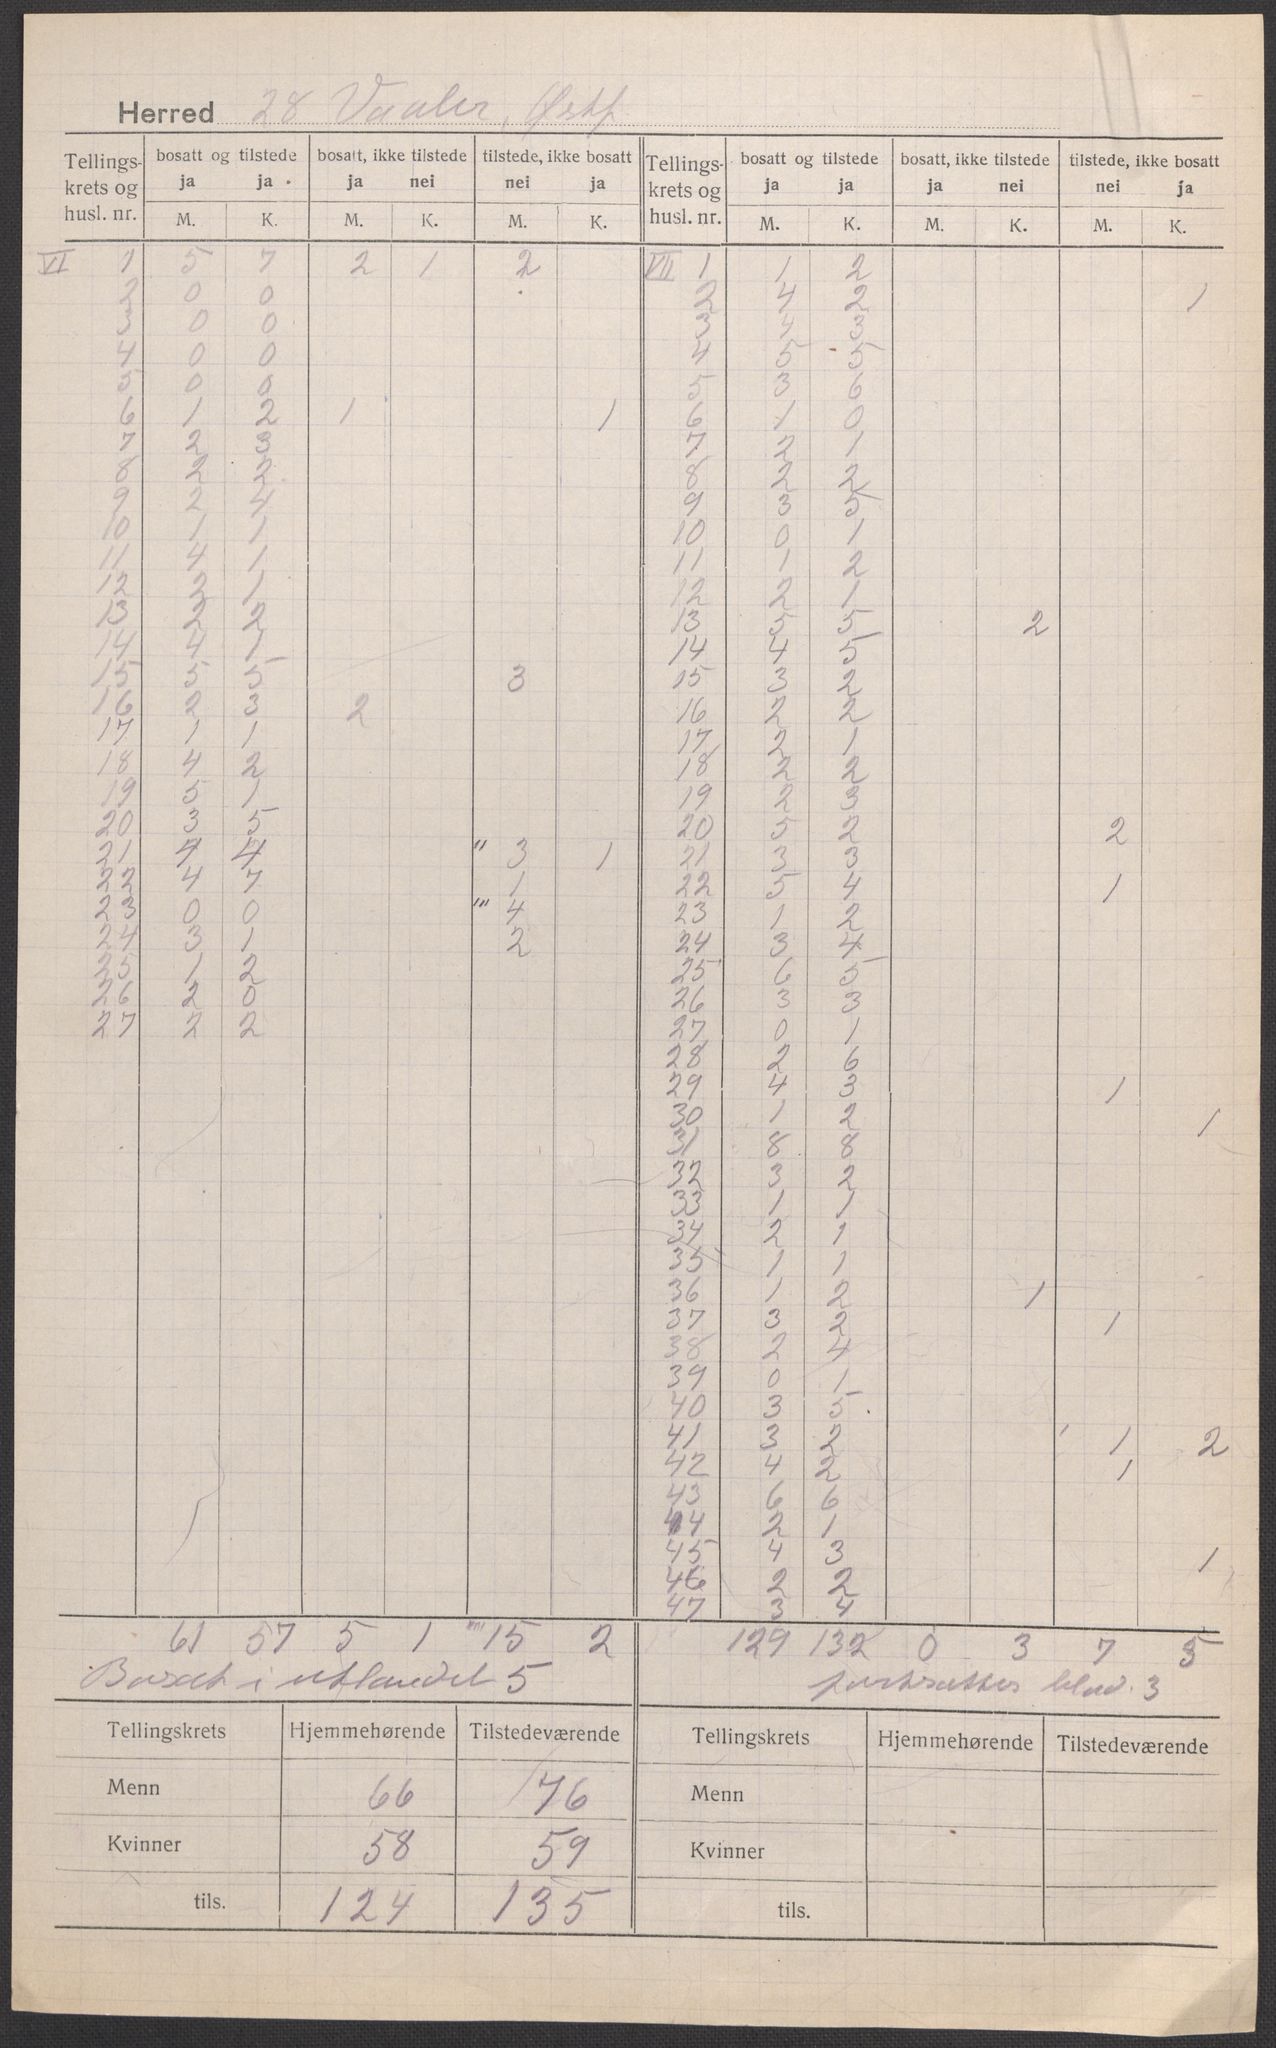 Herred 28 Vaaler, Østf
Tellings- krets og husl. nr. | bosatt og tilstede ja ja | bosatt, ikke tilstede ja nei | tilstede, ikke bosatt nei ja | Tellings- krets og husl. nr. | bosatt og tilstede ja ja | bosatt, ikke tilstede ja nei | tilstede, ikke bosatt nei ja
M. K. M. K. M. K. M. K. M. K. M. K.
VI 1 5 7 2 1 2
2 0 0
3 0 0
4 0 0
5 0 0
6 1 2 1 1
7 2 3
8 2 2
9 2 4
10 1 1
11 4 1
12 2 1
13 2 2
14 4 1
15 5 5 3
16 2 3 2
17 1 1
18 4 2
19 5 1
20 3 5
21 4 4 " 3 1
22 4 7 1
23 0 0 "' 4
24 3 1 2
25 1 2
26 2 0
27 2 2
61 57 5 1 """ 15 2
Bosat i utlandet 5
VII 1 1 2
2 4 2 1
3 4 3
4 5 5
5 3 6
6 1 0
7 2 1
8 2 2
9 3 5
10 0 1
11 1 2
12 2 1
13 5 5 2
14 4 5
15 3 2
16 2 2
17 2 1
18 2 2
19 2 3
20 5 2 2
21 3 3
22 5 4 1
23 1 2
24 3 4
25 6 5
26 3 3
27 0 1
28 2 6
29 4 3 1
30 1 2 1
31 8 8
32 3 2
33 1 1
34 2 1
35 1 1
36 1 2 1
37 3 2 1
38 2 4
39 0 1
40 3 5
41 3 2 ' 1 2
42 4 2 1
43 6 6
44 2 1
45 4 3 1
46 2 2
47 3 4
129 132 0 3 7 5
fortsettes blad. 3
Tellingskrets Hjemmehørende Tilstedeværende
Menn 66 76
Kvinner 58 59
tils. 124 135
Tellingskrets Hjemmehørende Tilstedeværende
Menn
Kvinner
tils.